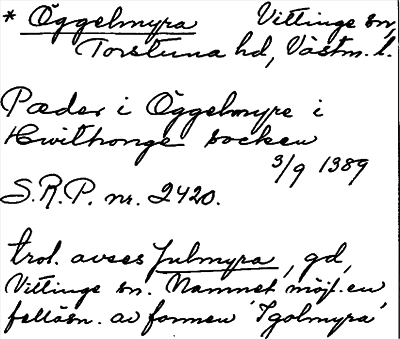 * Öggelmyra Vittinge sn,
Torstuna hd, Västm. l.
Pæder i Öggelmyre i
Hwitthonge socken
3/9 1389
S.R.P. nr. 2420.
trol. avses Julmyra, gd,
Vittinge sn. Namnet möjl. en
felläsn. av formen 'Igolmyra'